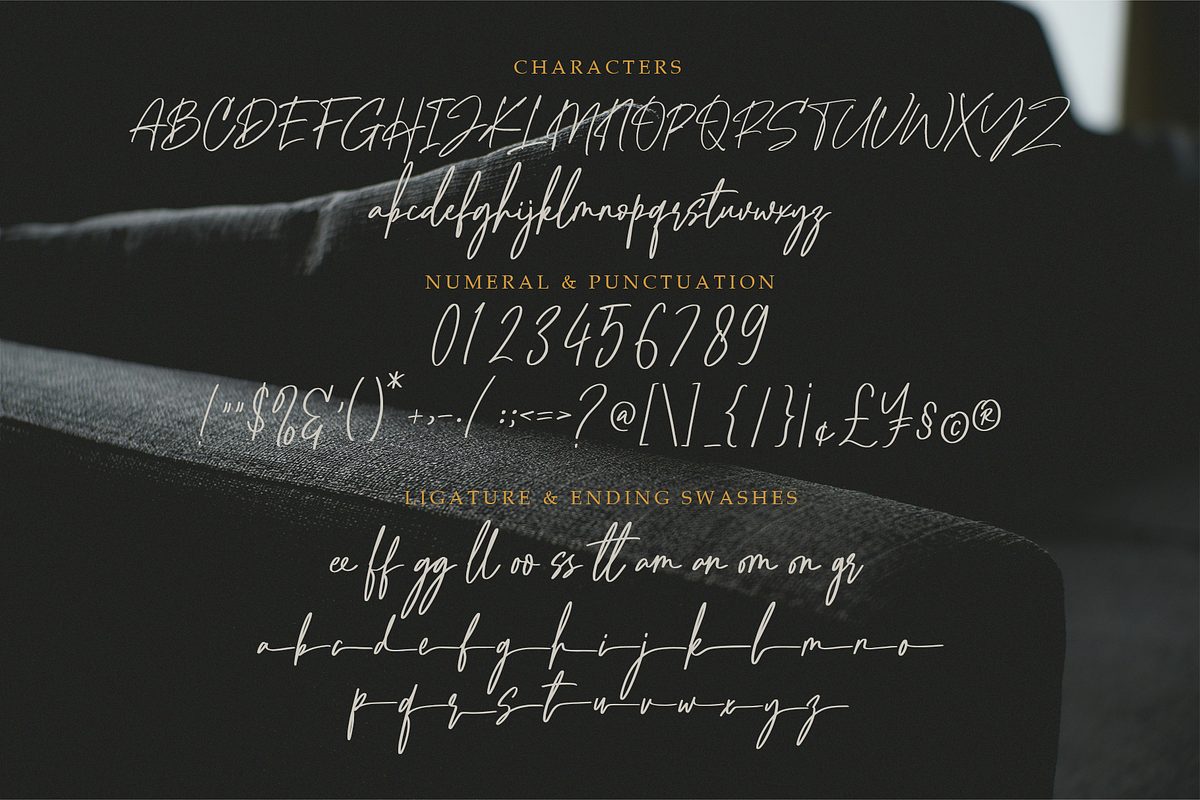 CHARACTERS
ABCDEFGHIJKLMNOPQRSTUVWXYZ
abcdefghijklmnopqrstuvwxyz
NUMERAL & PUNCTUATION
0123456789
!"'"$%&'()*+,-./:;<=>?@[\]_{|}¡¢£¥§©®
LIGATURE & ENDING SWASHES
ee ff gg ll oo ss tt am an om on gr
abcdefghijklmno
pqrstuvwxyz